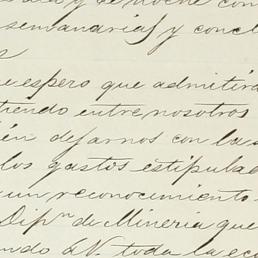 de noche con
semanarias y concl
s
espero que admitirá
tiendo entre nosotros
én dejarnos con la
los gastos estipula
un reconocimiento
Dipn de Mineria que
ndo a V. toda la ec